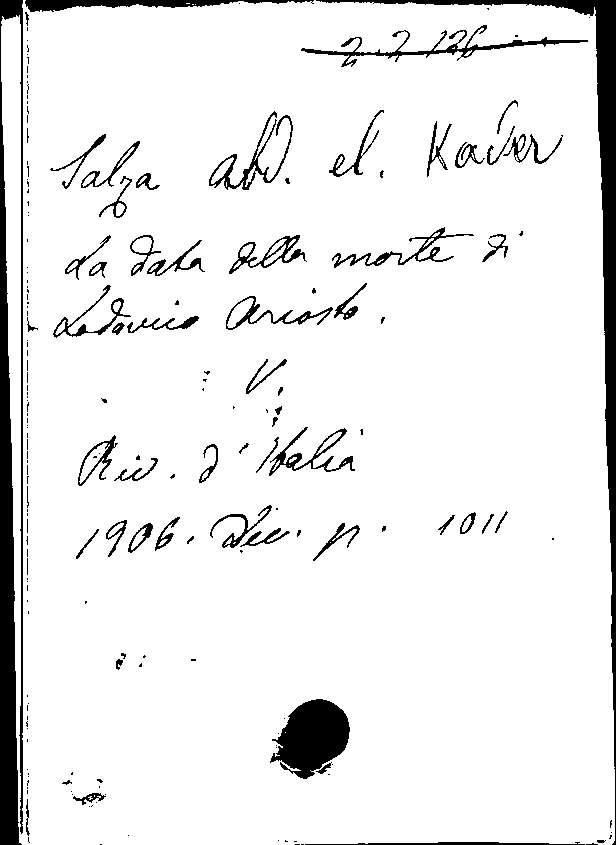 2 2 126
Salza abd. el. Kader
La data della morte di
Lodovico Ariosto.
V.
Riv. d'Italia
1906. Dic. p. 1011